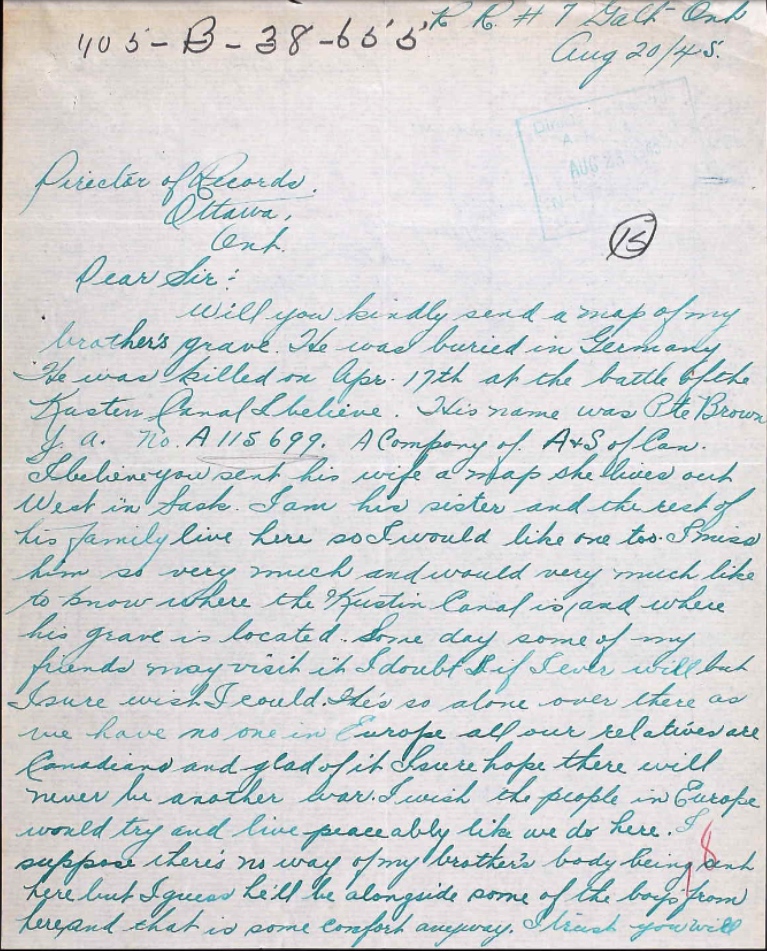 405-B-38-655
R R. # 7 Galt Ont
Aug 20/45.
AUG
Director of Records.
Ottawa,
Ont.
15
Dear Sir:
Will you kindly send a map of my
brother's grave. He was buried in Germany
He was killed on Apr. 17th at the battle of the
Kusten Canal I believe. His name was Pte Brown
J. A. No. A 115699. A Company of A+S of Can.
I believe you sent his wife a map she lives out
West in Sask. I am his sister and the rest of
his family live here so I would like one too. I miss
him so very much and would very much like
to know where the Kustin Canal is, and where
his grave is located. Some day some of my
friends may visit it I doubt if I ever will but
I sure wish I could. He's so alone over there as
we have no one in Europe all our relatives are
Canadians and glad of it I sure hope there will
never be another war. I wish the people in Europe
would try and live peaceably like we do here. I
suppose there's no way of my brother's body being sent
here but I guess he'll be alongside some of the boys from
here and that is some comfort anyway. I trust you will